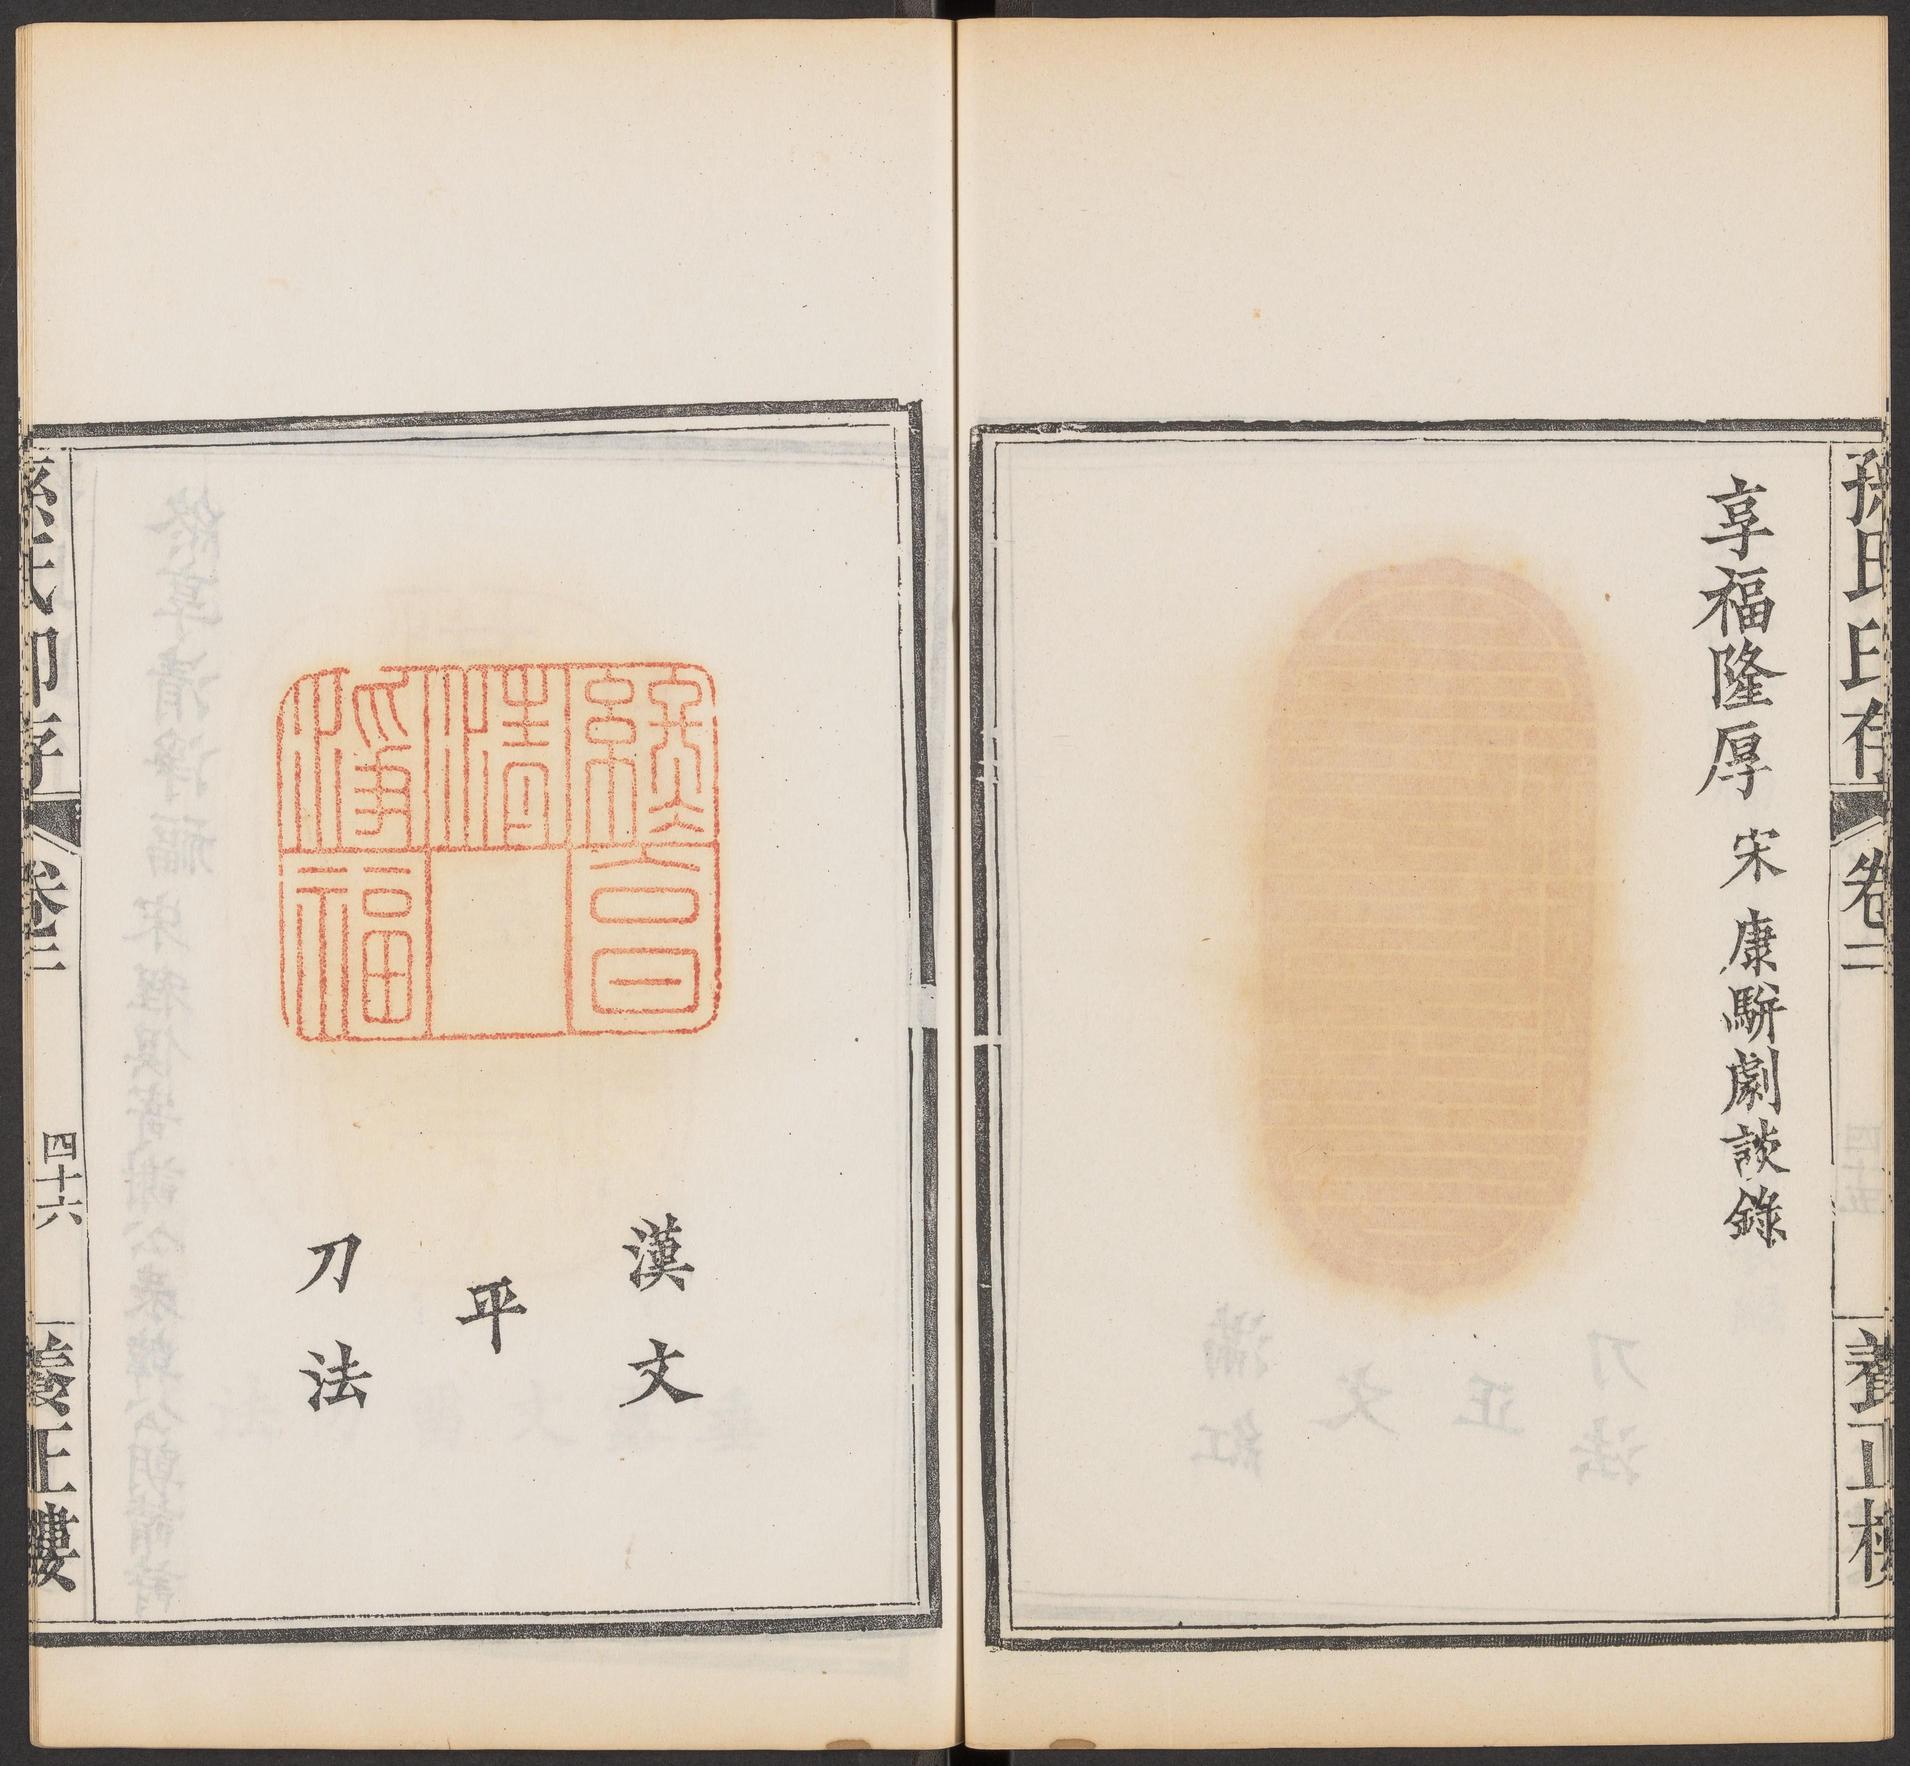 孫氏印存
卷二
養正樓
享福隆厚 宋 康駢劇談錄
終享清淨福
漢文
平
刀法
孫氏印存
卷二
四十六
養正樓